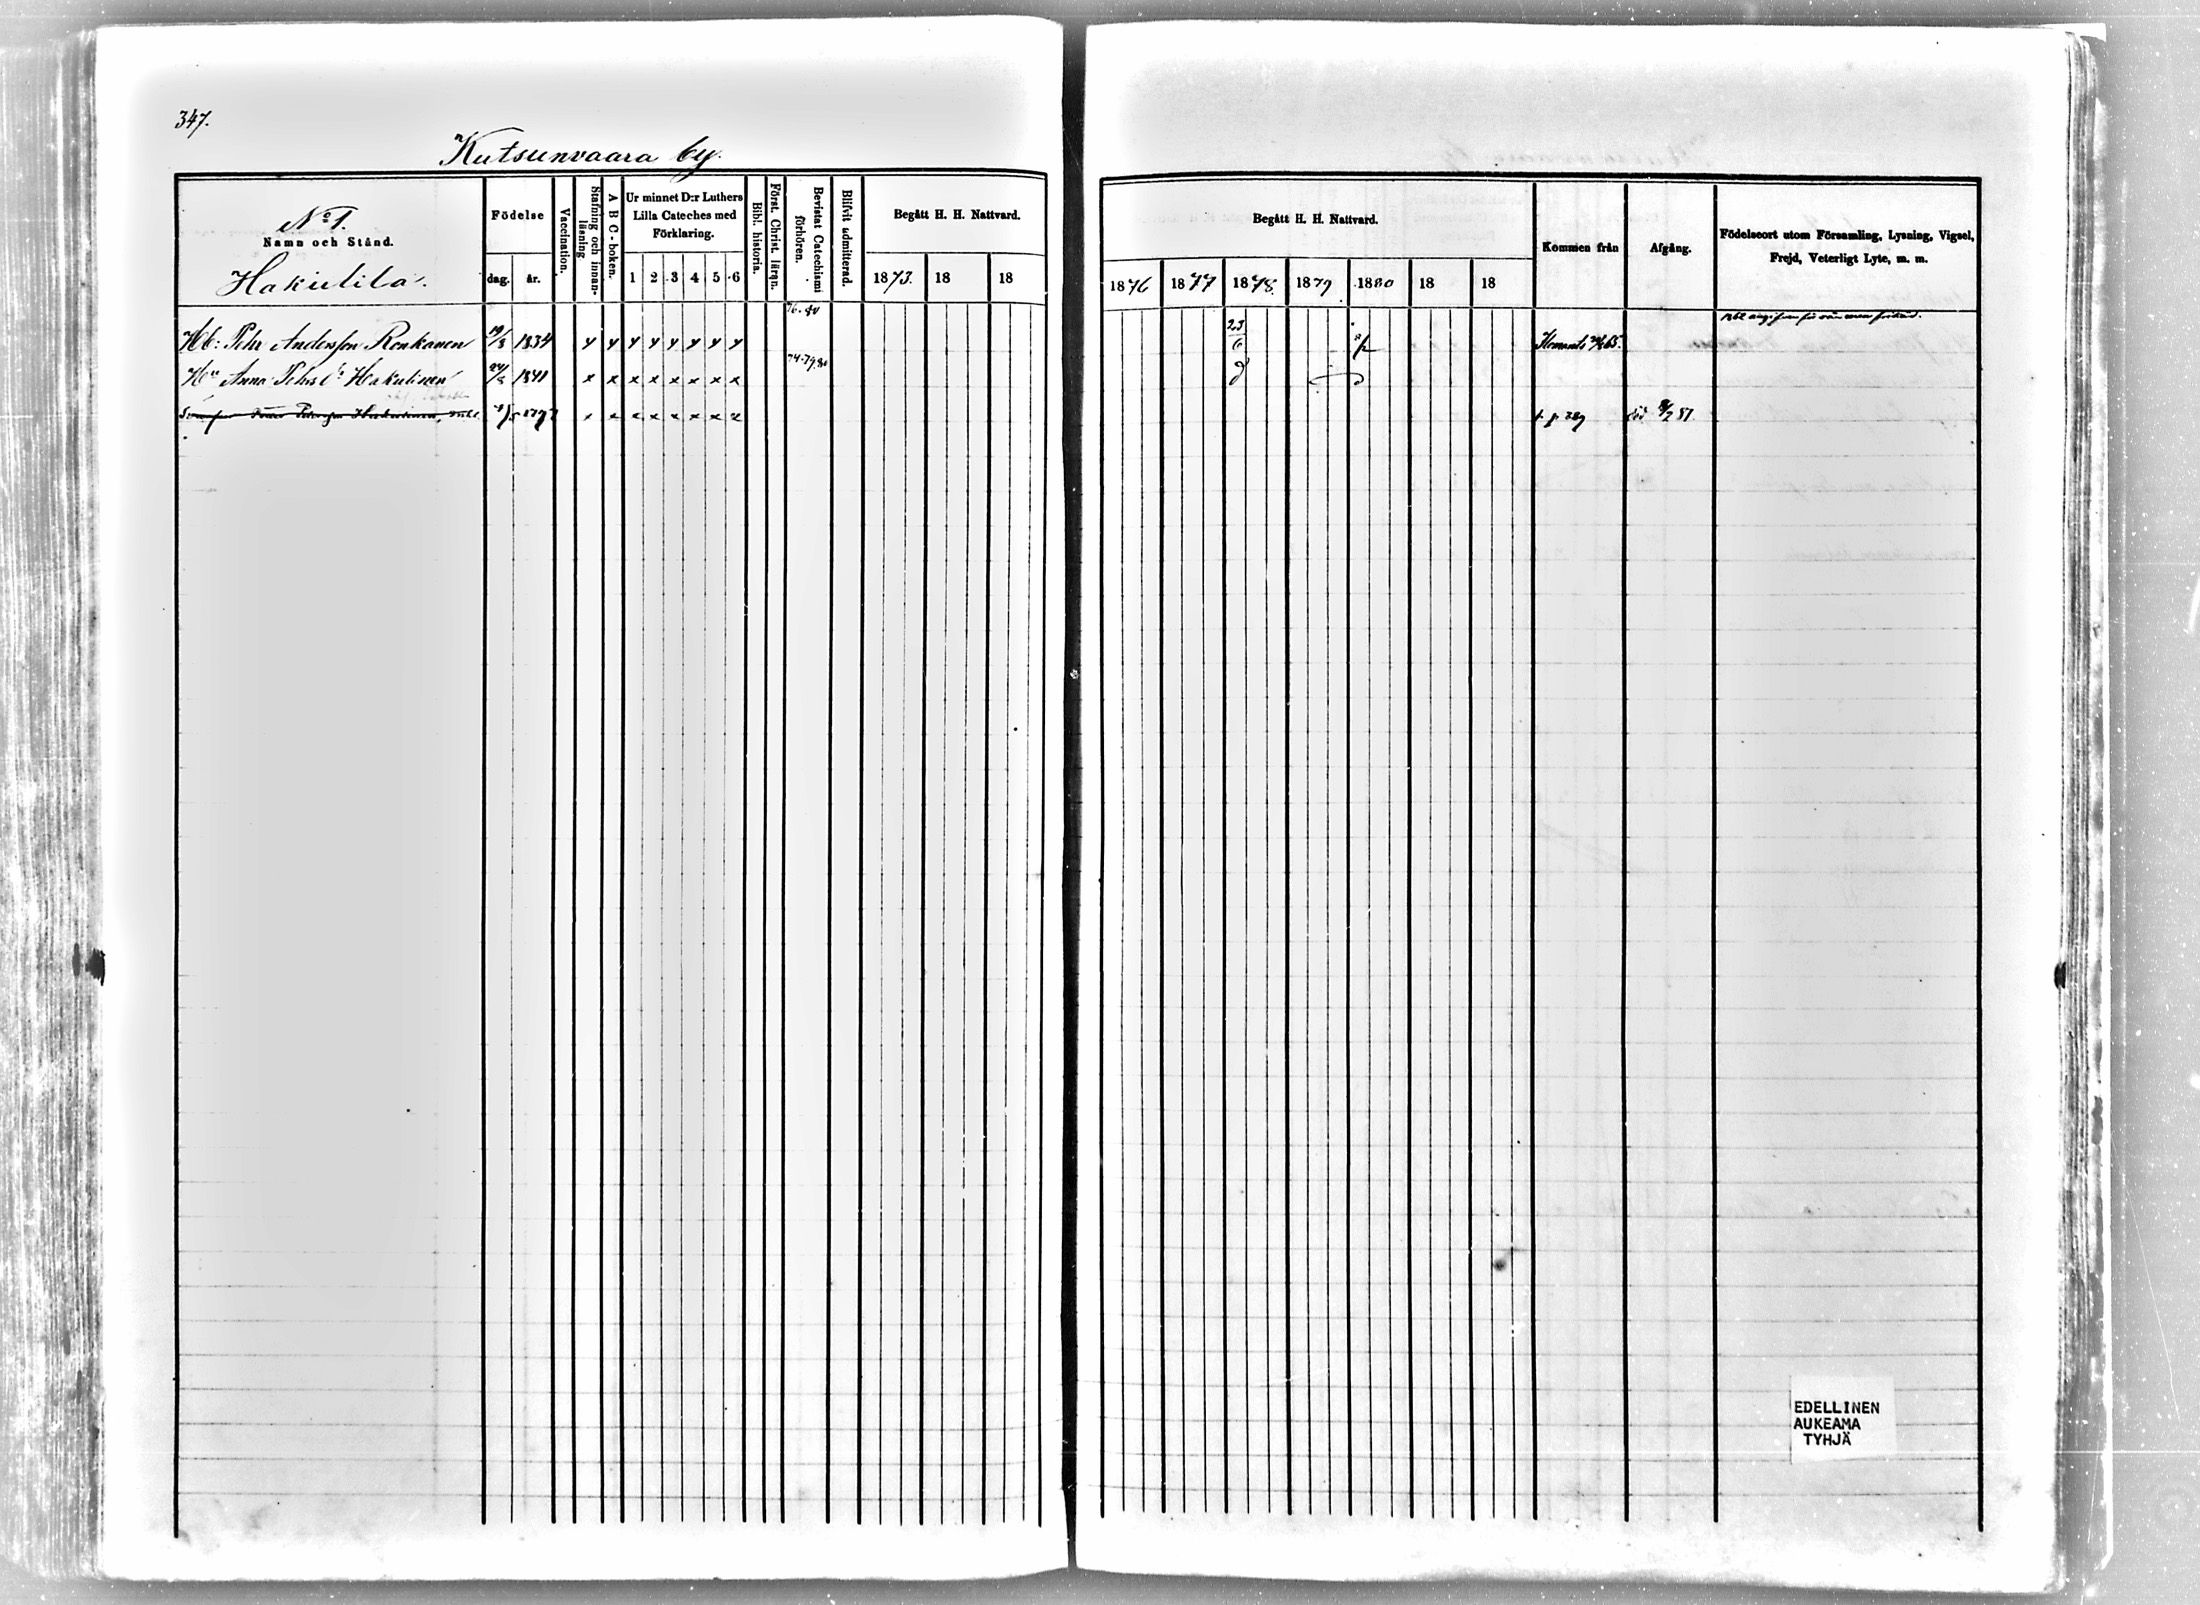 347.
Kutsunvaara by.
No 1.
Namn och Stånd.
Hakulila.
Födelse
dag.
år.
Vaccination.
Stafning och innan-
läsning
A B C-boken.
Ur minnet D:r Luthers
Lilla Cateches med
Förklaring.
1 2 3 4 5 6
Bibl. historia.
Först. Christ. läran.
Bevistat Catechismi
förhören.
Blifvit admitterad.
Begått H. H. Nattvard.
1873. 18 18
Begått H. H. Nattvard.
1876 1877 1878. 1879 1880 18 18
Kommen från
Afgång.
Födelseort utom Församling, Lysning, Vigsel,
Frejd, Veterligt Lyte, m. m.
76. 80
Hb: Pehr Andersson Ronkanen 19/8 1834 y y y y y y y y 23/6 Ilomants 65.
74-79.80
Hu Anna Pehrsdr Hakulinen 24/8 1841 x x x x x x x x
Hakulinen 1797 x x x x x x x f. p. 289 död 8/2 81.
EDELLINEN
AUKEAMA
TYHJÄ